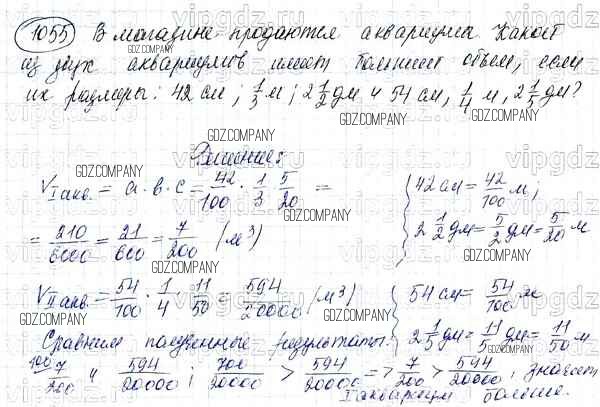 1055 В магазине продаются аквариумы. Какой
из двух аквариумов имеет больший объем, если
их размеры: 42 см; 1/3 м; 2 1/2 дм и 54 см, 1/4 м, 2 1/5 дм?
Решение:
V I акв. = a · b · c = 42/100 · 1/3 · 5/20 =
= 210/6000 = 21/600 = 7/200 (м³)
42 см = 42/100 м;
2 1/2 дм = 5/2 дм = 5/20 м
V II акв. = 54/100 · 1/4 · 11/50 = 594/20000 (м³)
54 см = 54/100 м
2 1/5 дм = 11/5 дм = 11/50 м
Сравним полученные результаты:
100/ 7/200 и 594/20000; 700/20000 > 594/20000 => 7/200 > 594/20000; значит
I аквариум больше.
GDZ.COMPANY
vipgdz